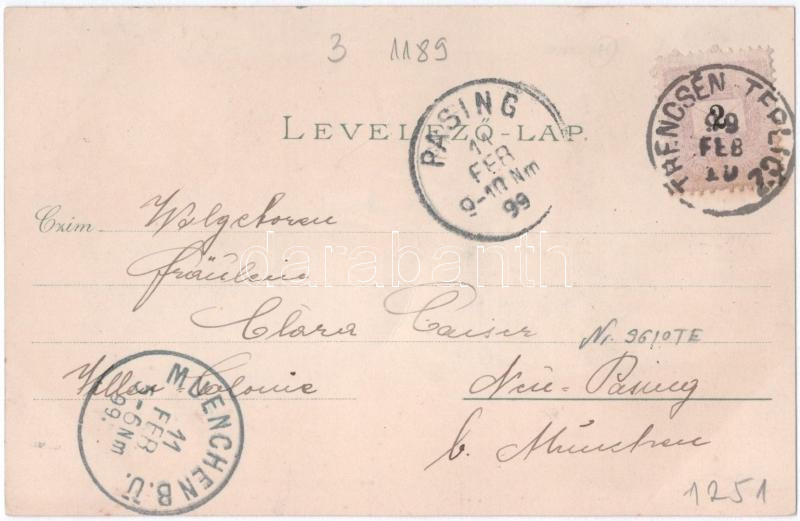 3 1189
LEVELEZŐ-LAP.
PASING
11
FEB
9-10 Nm
99
TRENCSÉN TEPLICZ
2
99
FEB
10
Czim Wolgeboren
Fräulein
Clara Caiser
Nr. 9610TE
Villen-Colonie Neu-Pasing
b. München
MUENCHEN B.Ü.
11
FEB
5-6 Nm
99.
1251
darabanth